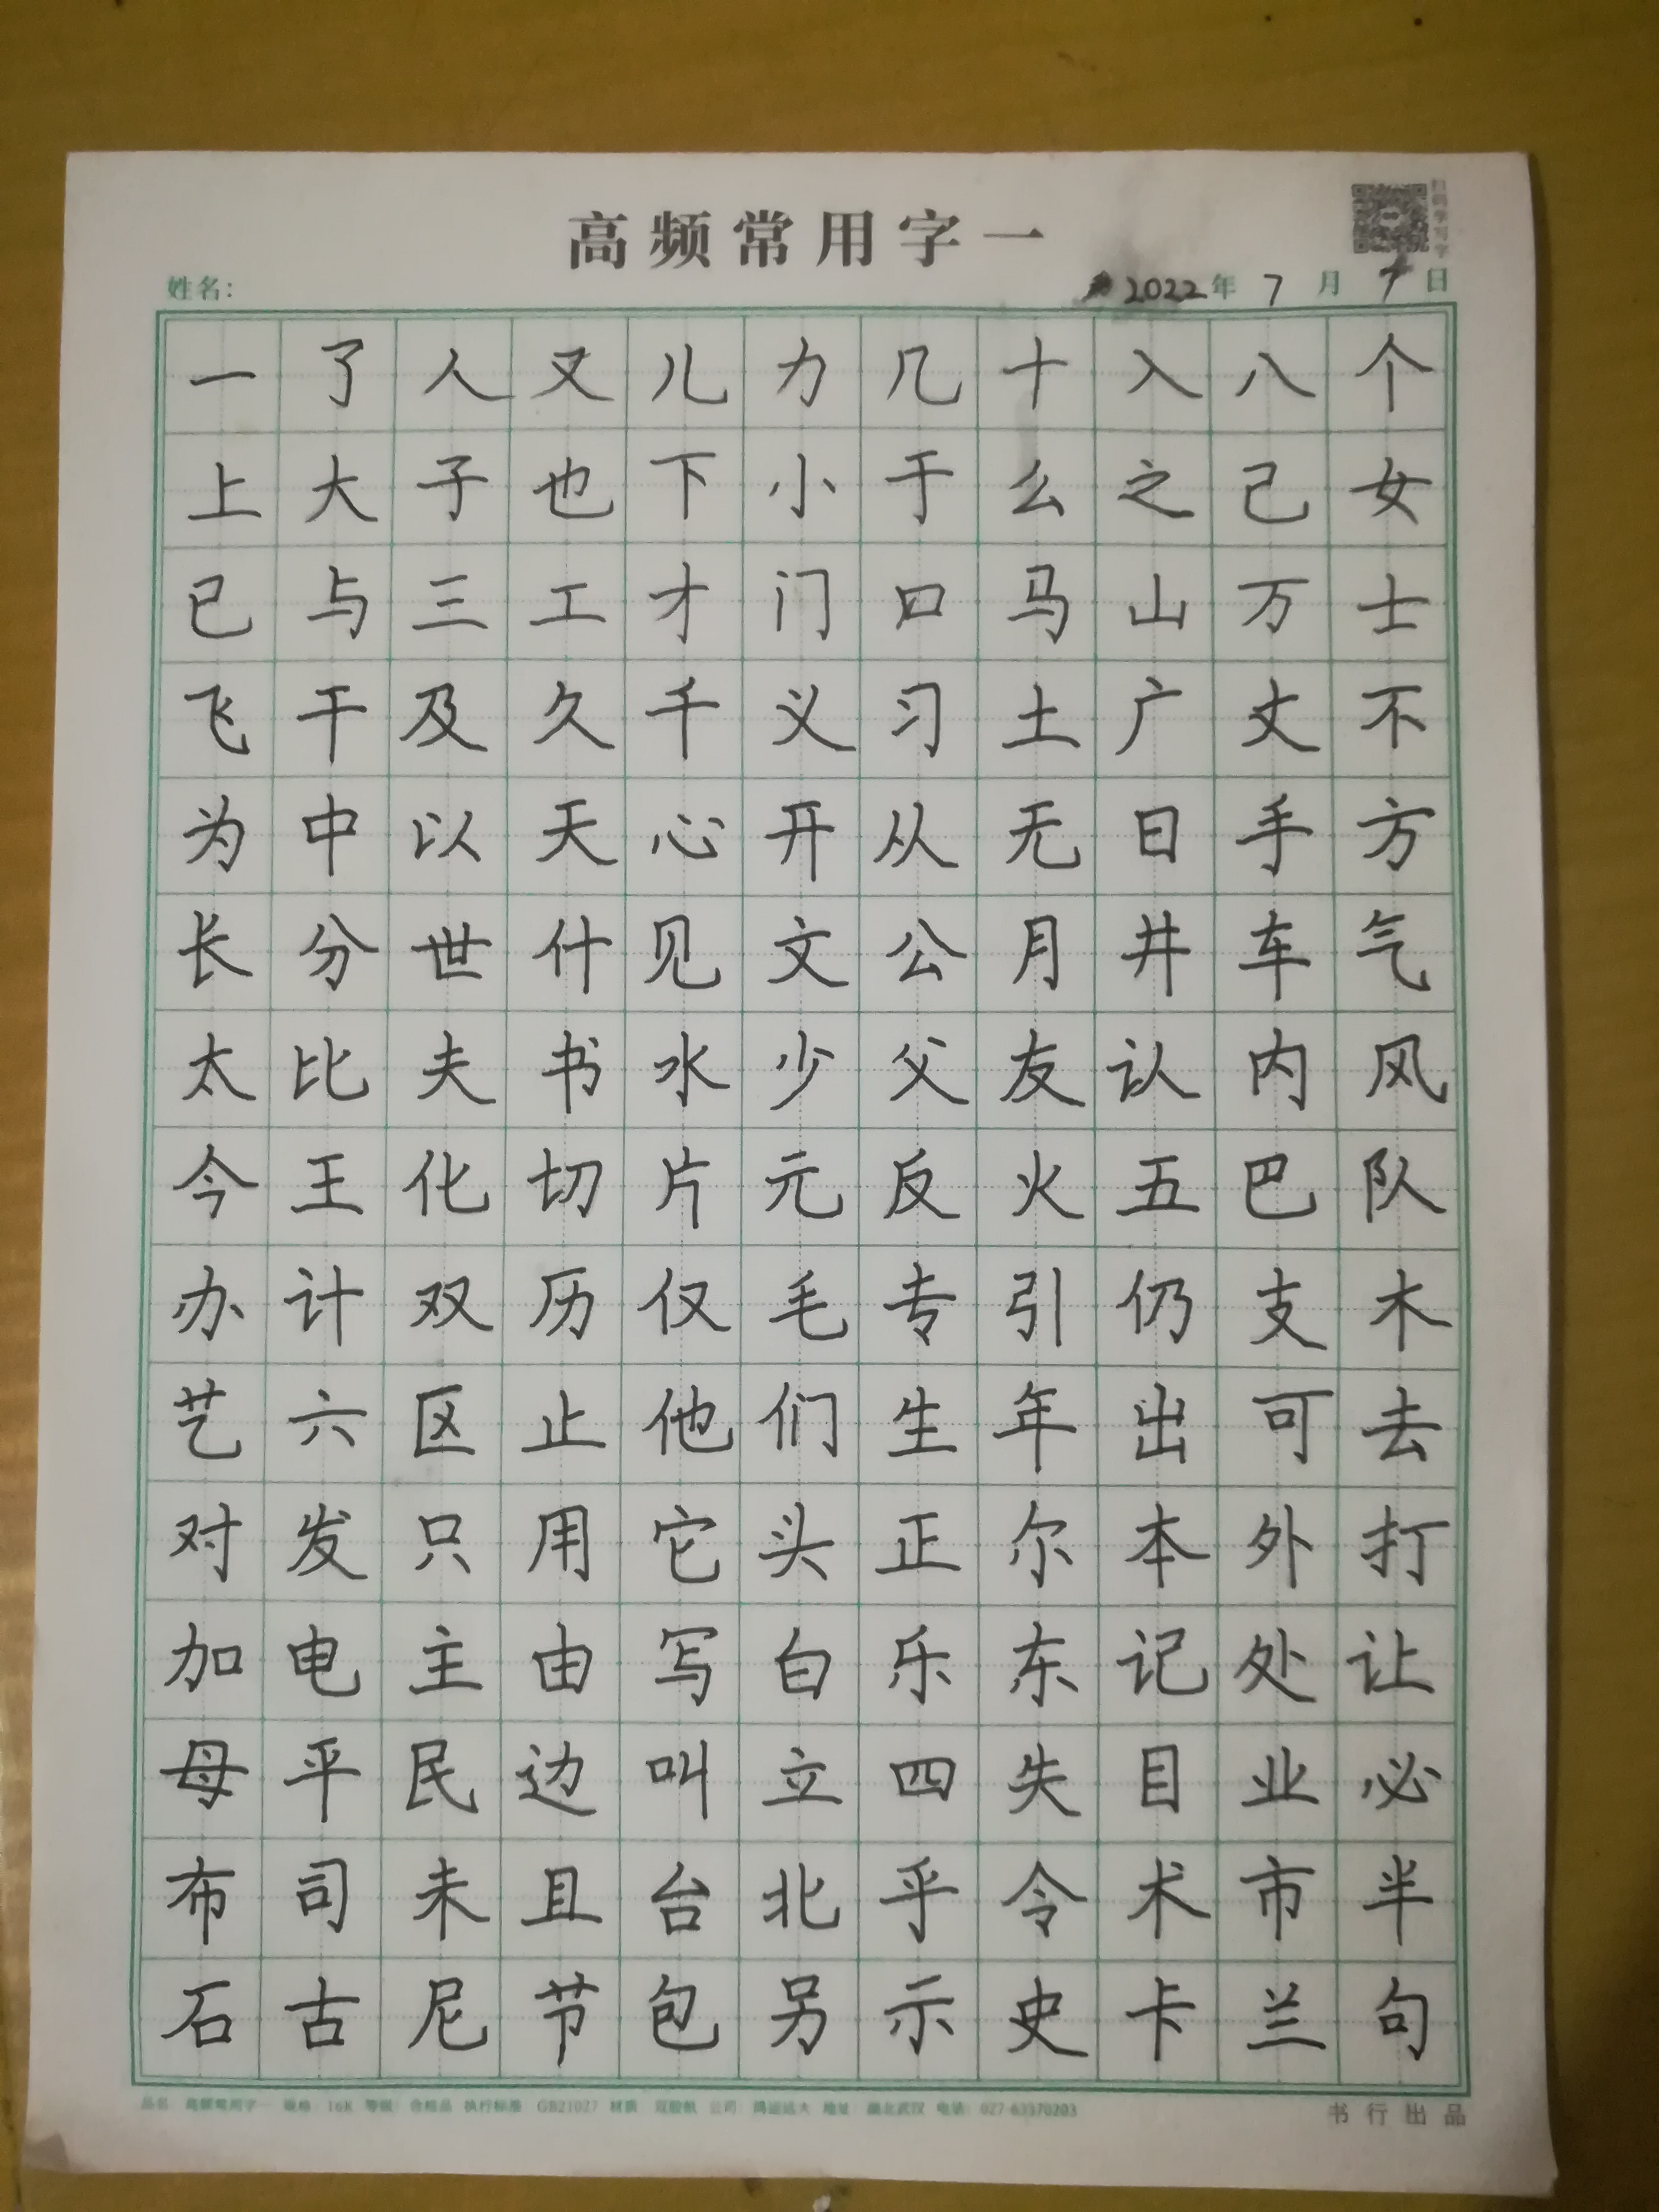 高频常用字一
姓名:
2022年7月日
一了人又儿力几十入八个
上大子也下小于么之己女
已与三工才门口马山万士
飞干及久千义习土广丈不
为中以天心开从无日手方
长分世什见文公月井车气
太比夫书水少父友认内风
今王化切片元反火五巴队
办计双历仅毛专引仍支木
艺六区止他们生年出可去
对发只用它头正尔本外打
加电主由写白乐东记处让
母平民边叫立四失目业必
布司未且台北乎令术市半
石古尼节包另示史卡兰句
品名 高频常用字一 规格 16K 等级 合格品 执行标准 GB21027 材质 双胶纸 公司 鸿运远大 地址 湖北武汉 电话 027-63370203
书行出品